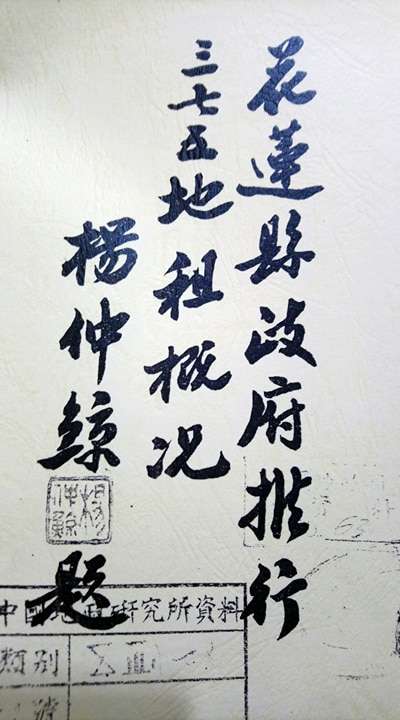 花蓮縣政府推行
三七五地租概況
楊仲鯨題
楊仲鯨
中國地政研究所資料
類別